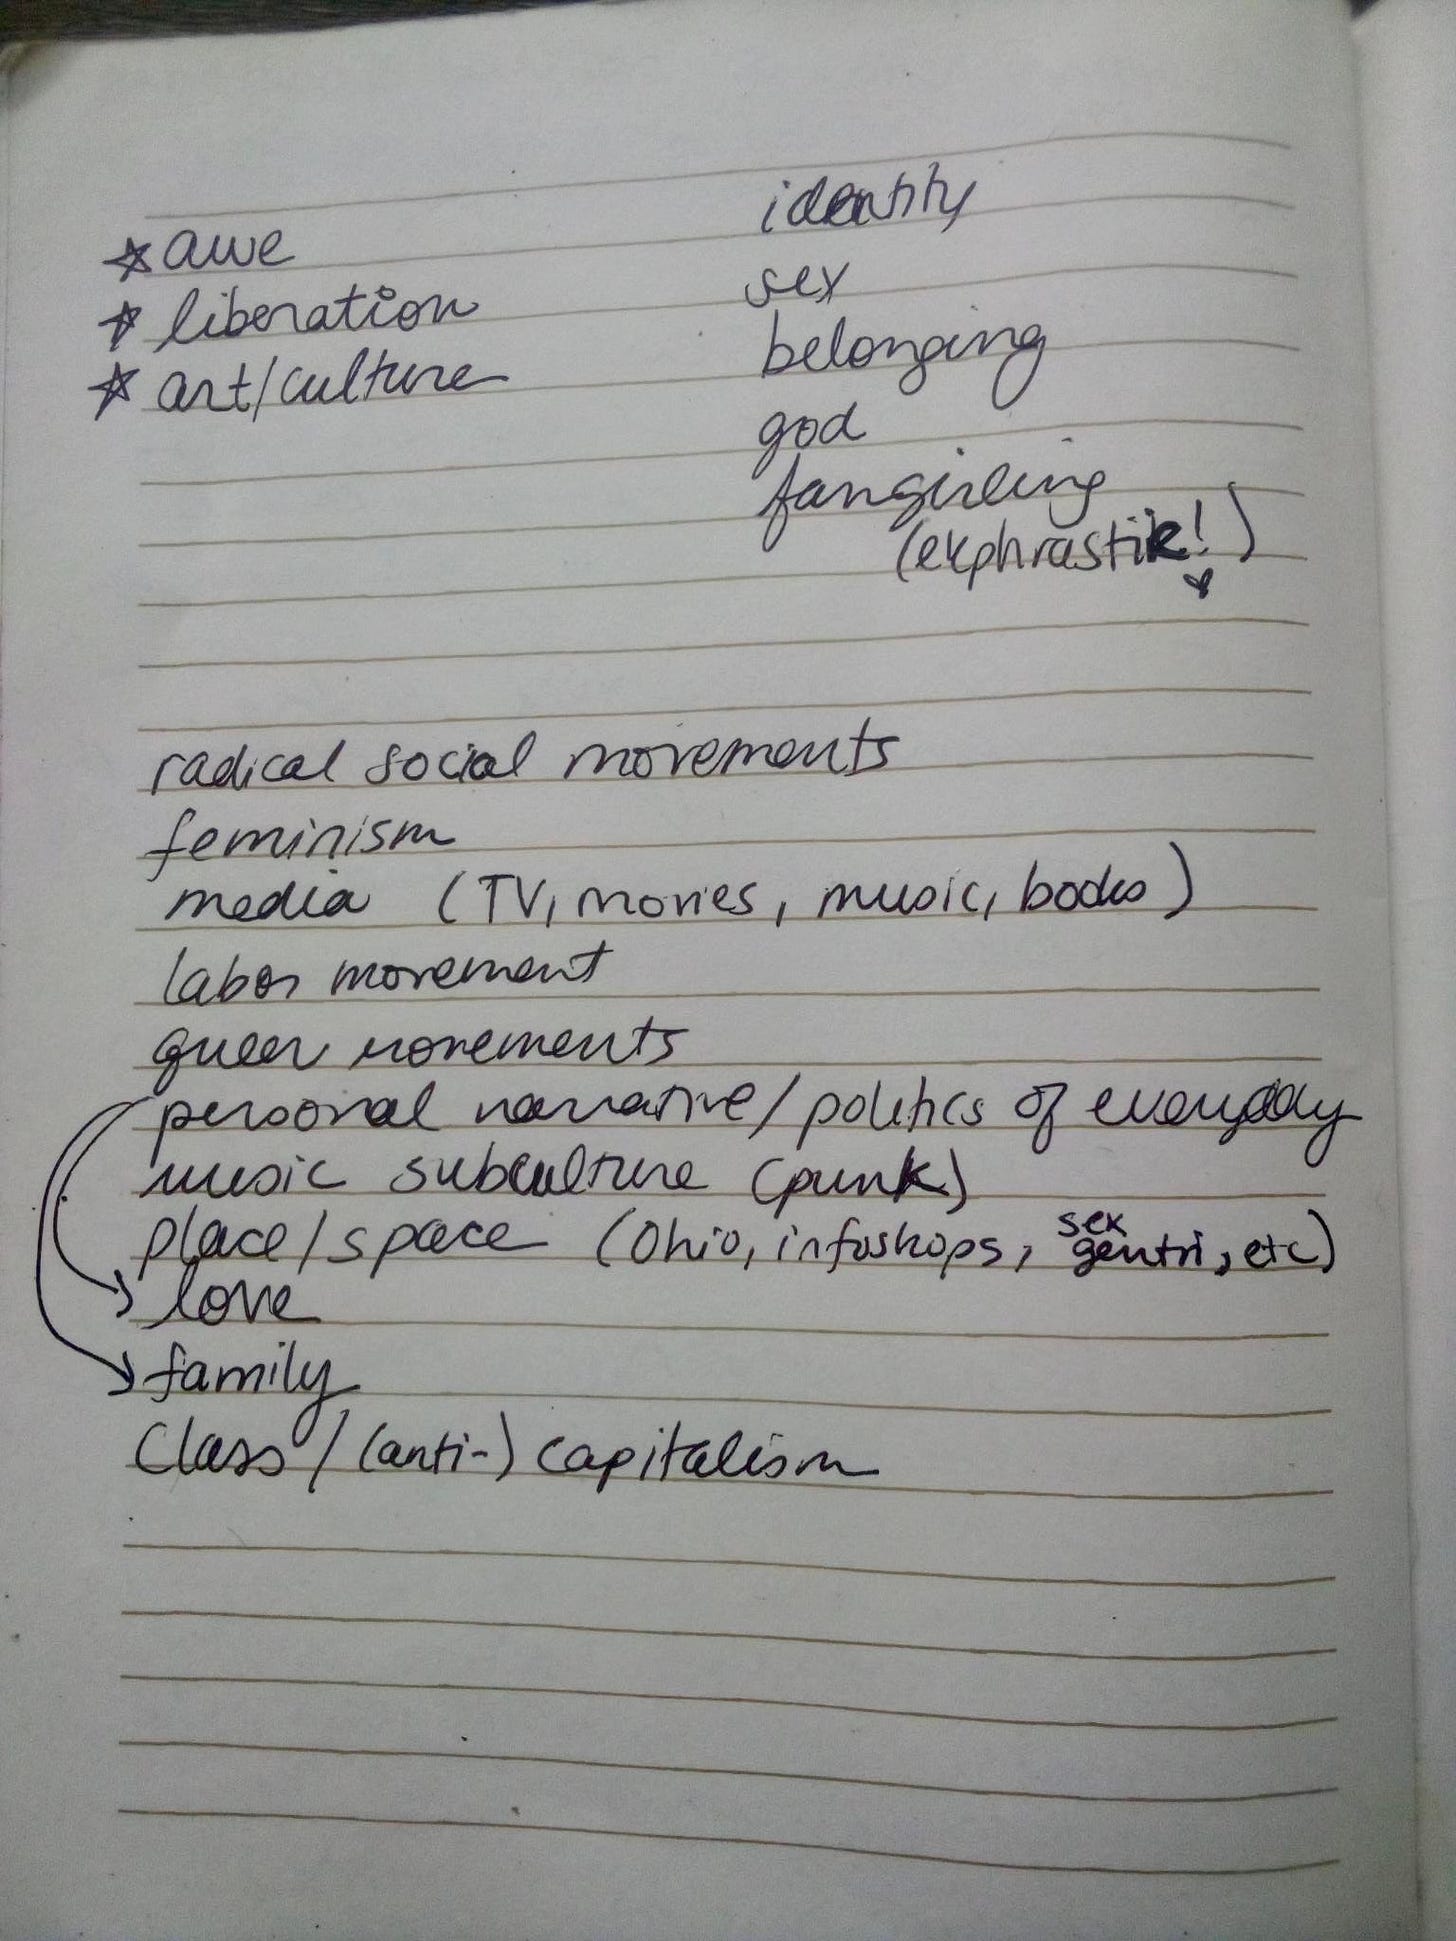 ☆ awe
☆ liberation
☆ art/culture
identity
sex
belonging
god
fangirling
(ekphrastik!)
radical social movements
feminism
media (TV, movies, music, books)
labor movement
queer movements
personal narrative/politics of everyday
music subculture (punk)
sex
place/space (Ohio, infoshops, gentri, etc)
love
family
Class/(anti-) capitalism